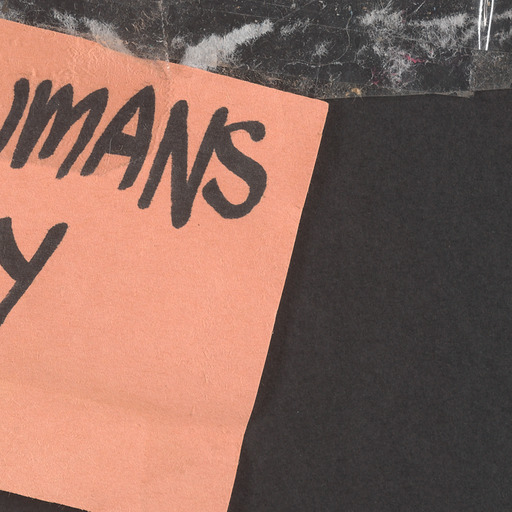 UMANS
Y